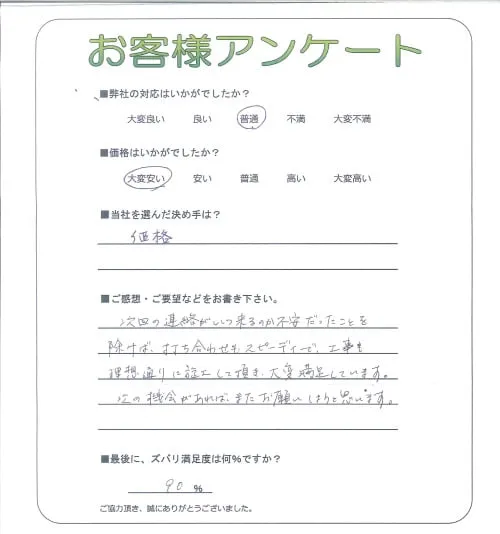 お客様アンケート
■弊社の対応はいかがでしたか？
大変良い 良い 普通 不満 大変不満
■価格はいかがでしたか？
大変安い 安い 普通 高い 大変高い
■当社を選んだ決め手は？
価格
■ご感想・ご要望などをお書き下さい。
次回の連絡がいつ来るのか不安だったことを
除けば、打ち合わせもスピーディーで、工事も
理想通りに施工して頂き、大変満足しています。
次の機会があれば、またお願いしようと思います。
■最後に、ズバリ満足度は何%ですか？
90 %
ご協力頂き、誠にありがとうございました。